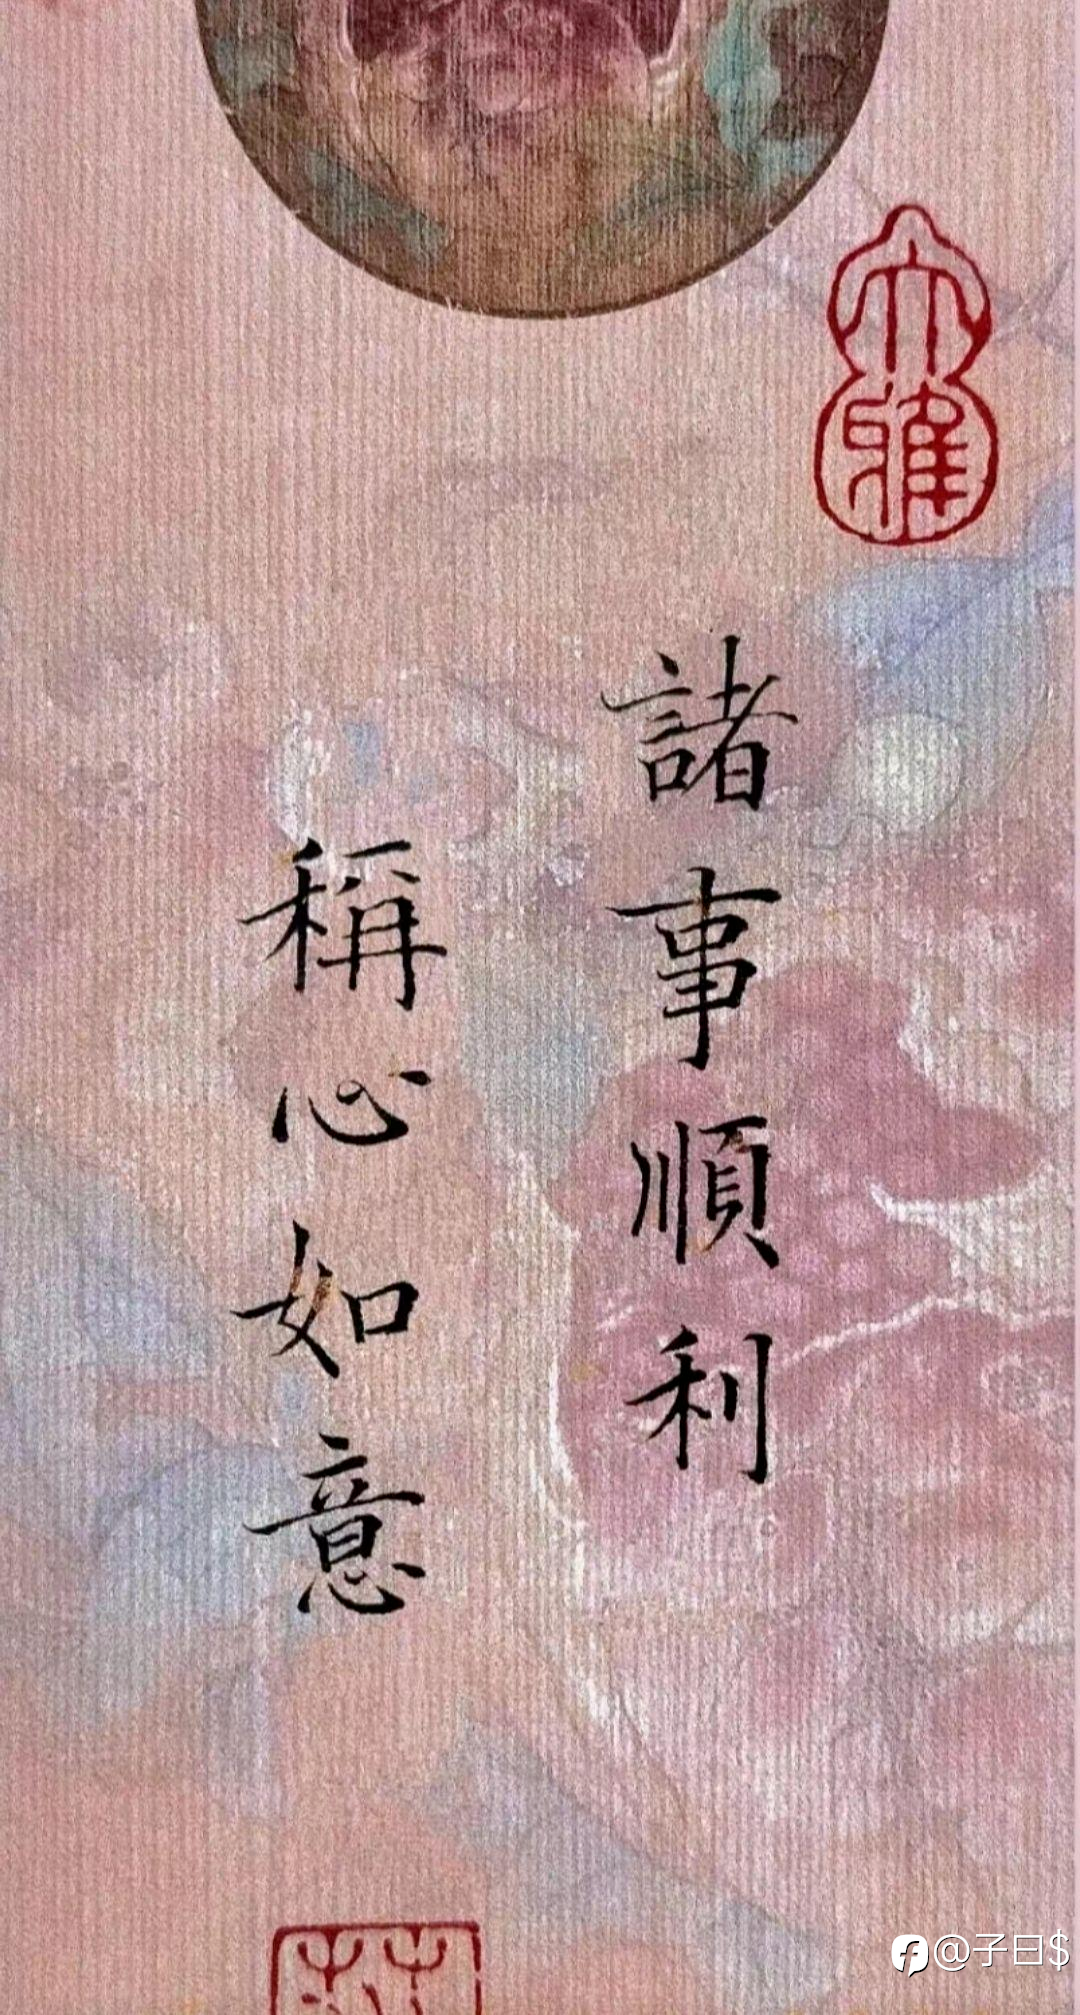 諸事順利
稱心如意
大雅
@子曰$